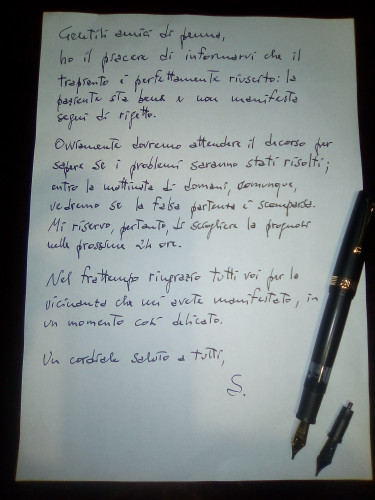 Gentili amici di penna,
ho il piacere di informarvi che il
trapianto è perfettamente riuscito: la
paziente sta bene e non manifesta
segni di rigetto.
Ovviamente dovremo attendere il decorso per
sapere se i problemi saranno stati risolti;
entro la mattinata di domani, comunque,
vedremo se la falsa partenza è scomparsa.
Mi riservo, pertanto, di sciogliere la prognosi
nelle prossime 24 ore.
Nel frattempo ringrazio tutti voi per la
vicinanza che mi avete manifestato, in
un momento così delicato.
Un cordiale saluto a tutti,
S.